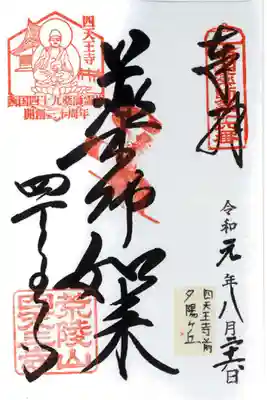 奉拝
令和元年八月
四天王寺前
夕陽ヶ丘
薬師如来
四天王寺
四天王寺
西国四十九薬師霊場
開創三十周年
荒陵山
四天王寺